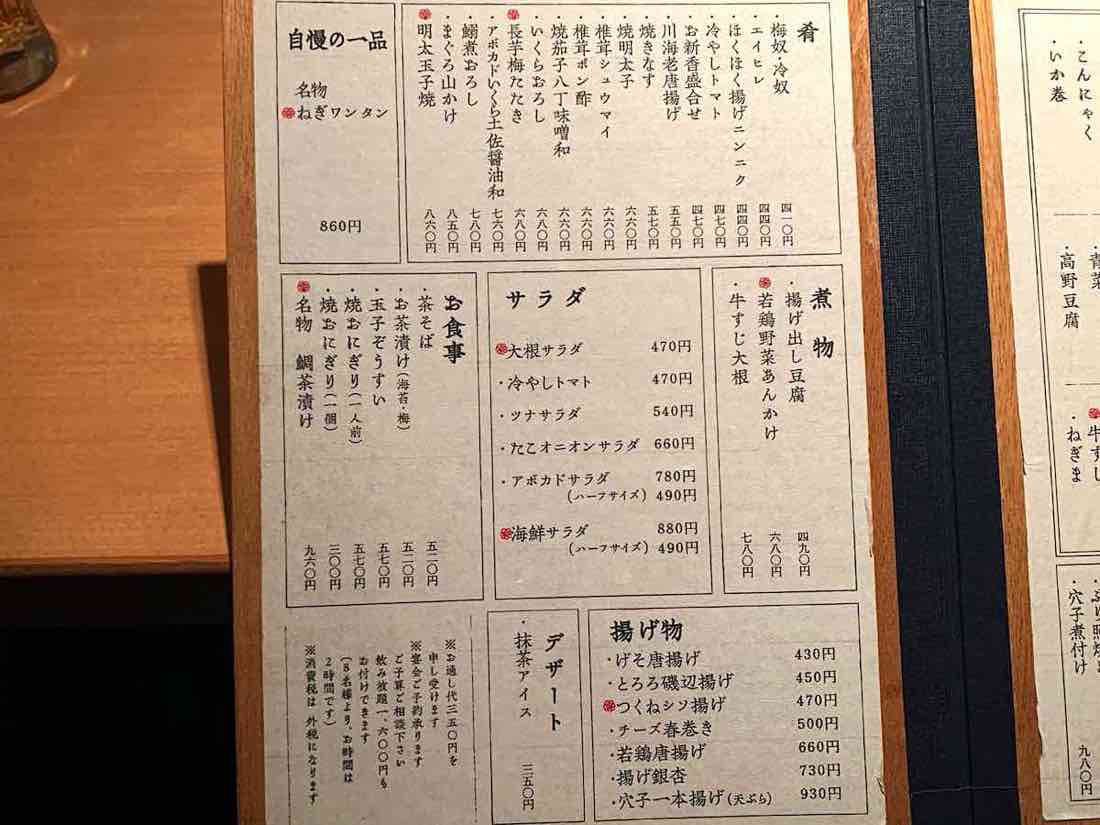 肴
・梅奴・冷奴 四一〇円
・エイヒレ 四四〇円
・ほくほく揚げニンニク 四四〇円
・冷やしトマト 四七〇円
・お新香盛合せ 四七〇円
・川海老唐揚げ 五五〇円
・焼きなす 五七〇円
・焼明太子 六六〇円
・椎茸シュウマイ 六六〇円
・椎茸ポン酢 六六〇円
・焼茄子八丁味噌和 六六〇円
・いくらおろし 六八〇円
長芋梅たたき 六八〇円
・アボカドいくら土佐醤油和 七六〇円
・鰯煮おろし 七八〇円
・まぐろ山かけ 八五〇円
明太玉子焼 八六〇円
自慢の一品
名物
ねぎワンタン
860円
煮物
・揚げ出し豆腐 四九〇円
若鶏野菜あんかけ 六八〇円
・牛すじ大根 七八〇円
サラダ
大根サラダ 470円
・冷やしトマト 470円
・ツナサラダ 540円
・たこオニオンサラダ 660円
・アボカドサラダ 780円
(ハーフサイズ) 490円
海鮮サラダ 880円
(ハーフサイズ) 490円
お食事
・茶そば 五二〇円
・お茶漬け(海苔・梅) 五二〇円
・玉子ぞうすい 五七〇円
・焼おにぎり(一人前) 五七〇円
・焼おにぎり(一個) 三〇〇円
名物 鯛茶漬け 九六〇円
揚げ物
・げそ唐揚げ 430円
・とろろ磯辺揚げ 450円
つくねシソ揚げ 470円
・チーズ春巻き 500円
・若鶏唐揚げ 660円
・揚げ銀杏 730円
・穴子一本揚げ(天ぷら) 930円
デザート
・抹茶アイス 三五〇円
※お通し代三五〇円を
申し受けます
※宴会ご予約承ります
ご予算ご相談下さい
飲み放題一、六〇〇円も
お付けできます
(8名様より、お時間は
2時間です)
※消費税は 外税になります
・こんにゃく
・いか巻
・高野豆腐
・ねぎま
・穴子煮付け
九八〇円